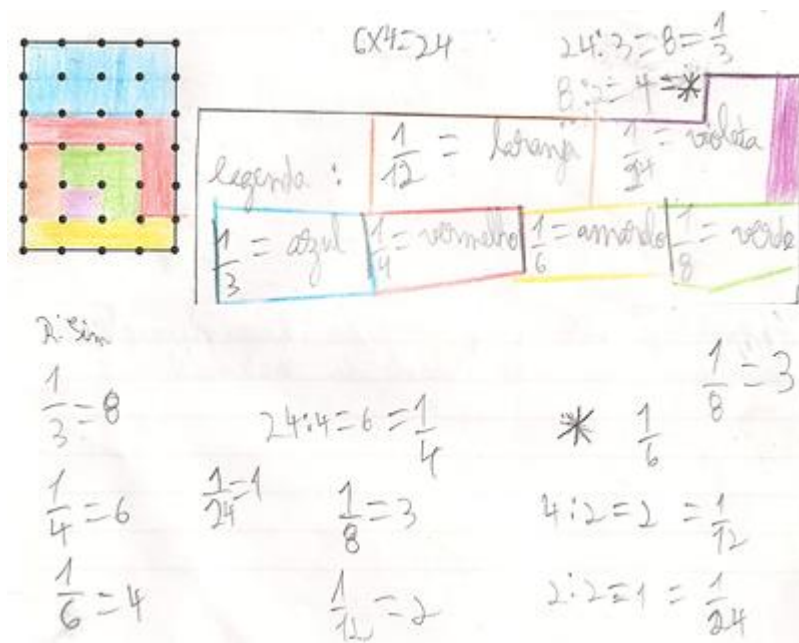 6x4=24
24:3=8=1/3
8:2=4=*
legenda:
1/12 = laranja
1/24 = violeta
1/3 = azul
1/4 = vermelho
1/6 = amarelo
1/8 = verde
R: Sim
1/3 = 8
24:4=6=1/4
* 1/6
1/8 = 3
1/4 = 6
1/24=1
1/8 = 3
4:2=2 = 1/12
1/6 = 4
1/12 = 2
2:2=1 = 1/24